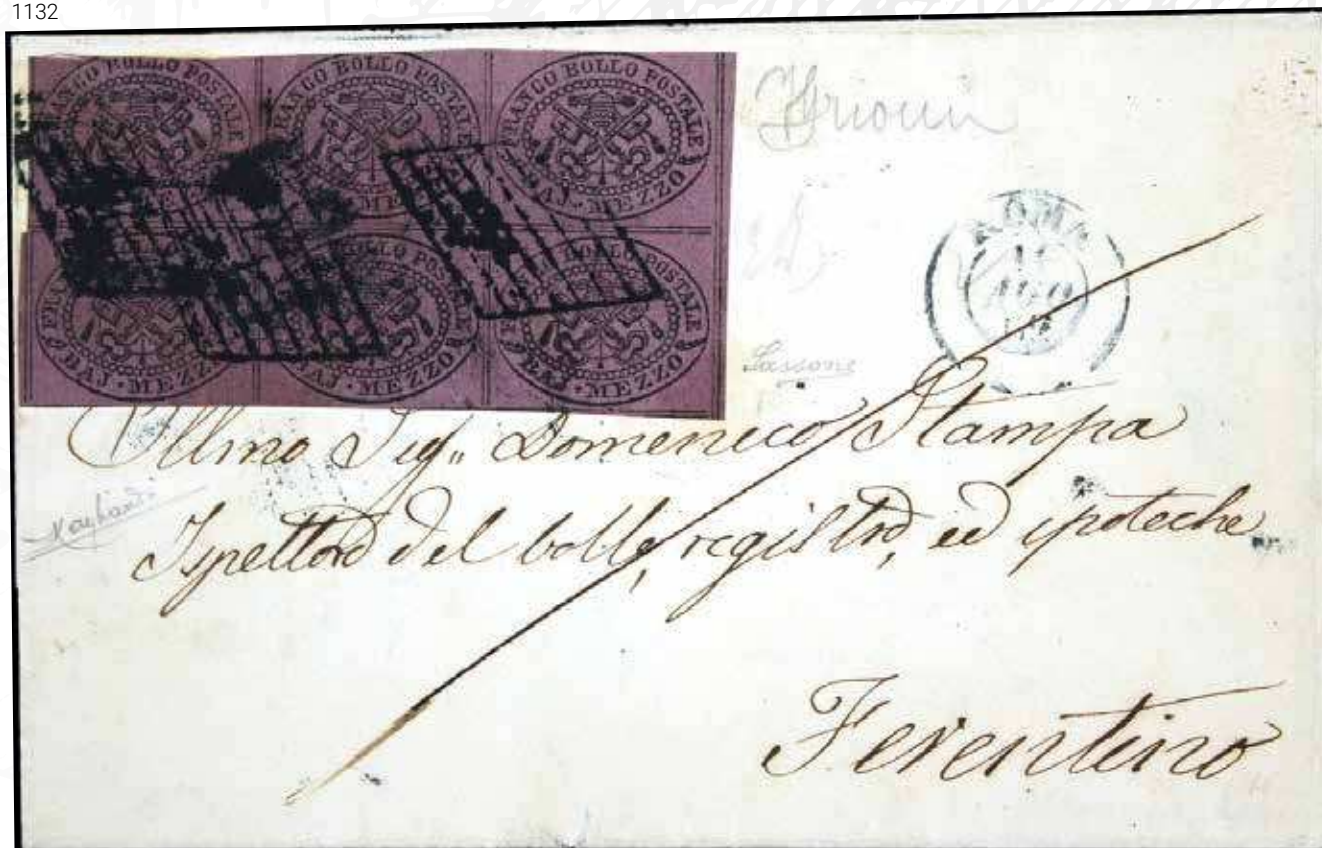 1132
FRANCO BOLLO POSTALE
BAJ · MEZZO
FRANCO BOLLO POSTALE
BAJ · MEZZO
FRANCO BOLLO POSTALE
BAJ · MEZZO
FRANCO BOLLO POSTALE
BAJ · MEZZO
FRANCO BOLLO POSTALE
BAJ · MEZZO
FRANCO BOLLO POSTALE
BAJ · MEZZO
ROMA
AGO
Illmo Sig,, Domenico Stampa
Ispettore del bollo, registro, ed ipoteche
Ferentino